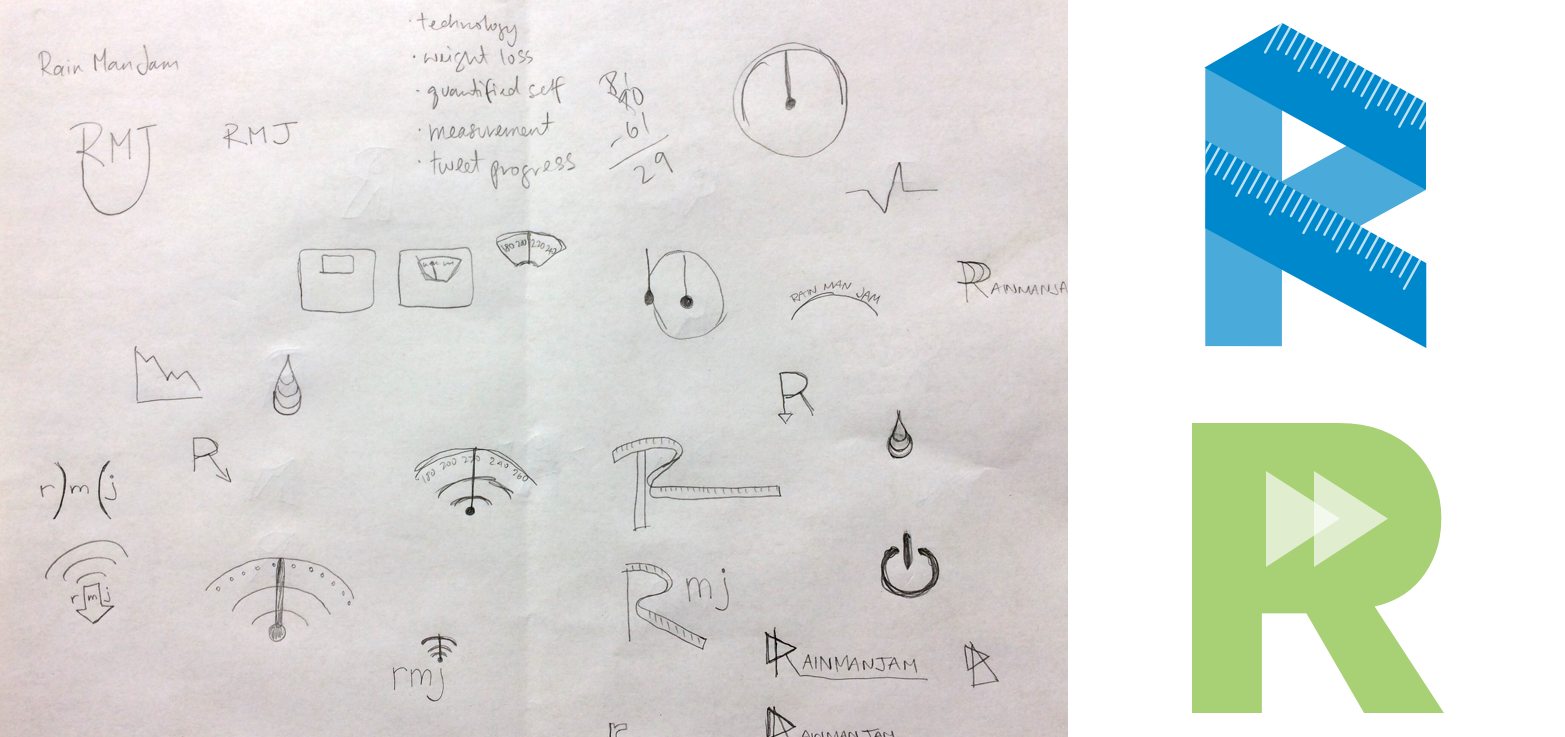 Rain Man Jam
· technology
· weight loss
· quantified self
· measurement
· tweet progress
RMJ
RMJ
90
-61
29
180 200 220 240
RAIN MAN JAM
RAINMANJA
R
R
r)m(j
180 200 220 240 260
R
rmj
Rmj
rmj
RAINMANJAM
R
r
RAINMANJAM
R
R